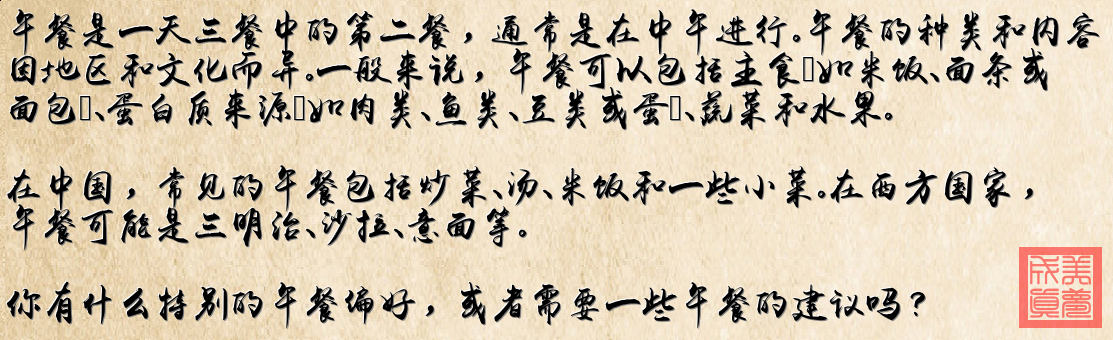 午餐是一天三餐中的第二餐，通常是在中午进行。午餐的种类和内容
因地区和文化而异。一般来说，午餐可以包括主食□如米饭、面条或
面包□、蛋白质来源□如肉类、鱼类、豆类或蛋□、蔬菜和水果。
在中国，常见的午餐包括炒菜、汤、米饭和一些小菜。在西方国家，
午餐可能是三明治、沙拉、意面等。
你有什么特别的午餐偏好，或者需要一些午餐的建议吗？
美梦
成真